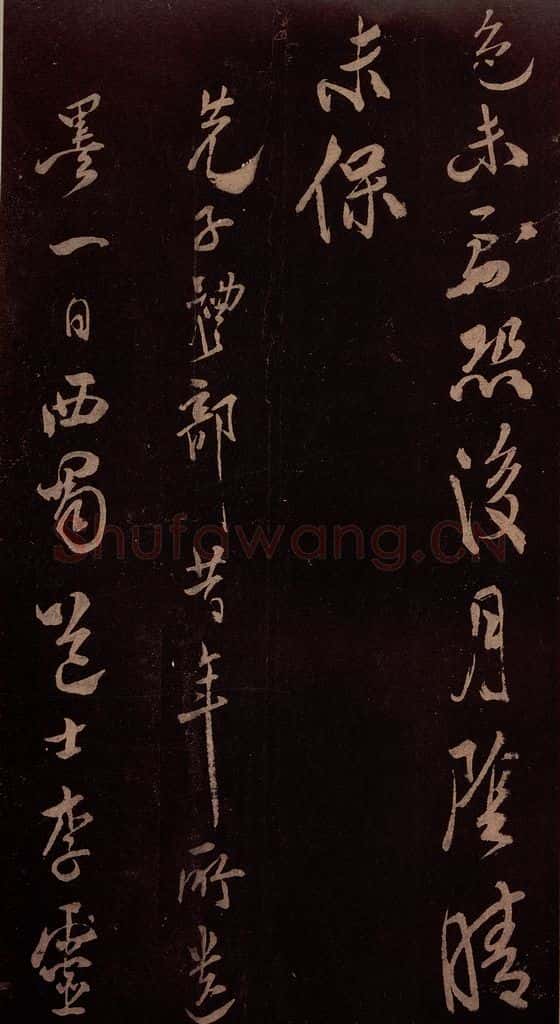 色未恐後月陰晴
未保
先子禮部昔年所遺
墨一日西蜀道士李靈
Shufawang.CN